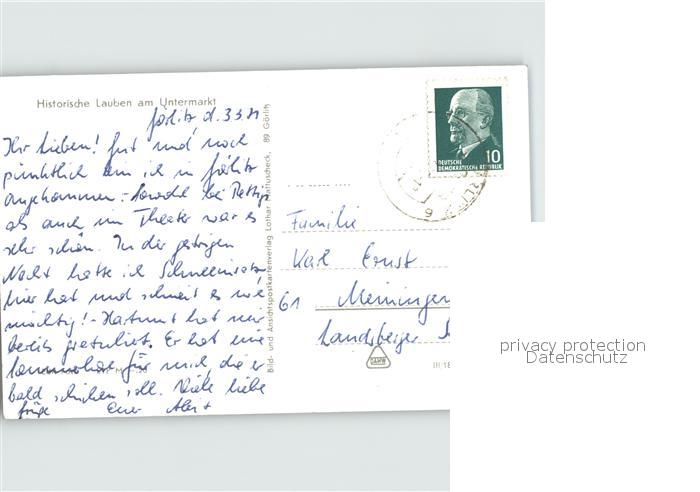 Historische Lauben am Untermarkt
Görlitz d. 3.3.71
Ihr Lieben! Gut und noch
pünktlich bin ich in Görlitz
angekommen. Sowohl bei
als auch im Theater war es
sehr schön. In der gestrigen
Nacht hatte ich Schneeeinsatz
hier hat und schneit es wie
mächtig! - Hartmut hat mir
bereits gratuliert. Er hat eine
für mich, die er
bald schicken soll. Viele liebe
Grüße Euer
Bild- und Ansichtspostkartenverlag Lothar 89 Görlitz
DEUTSCHE
DEMOKRATISCHE REPUBLIK
10
Familie
Karl Ernst
61 Meiningen
Landsberger
III/18
privacy protection
Datenschutz